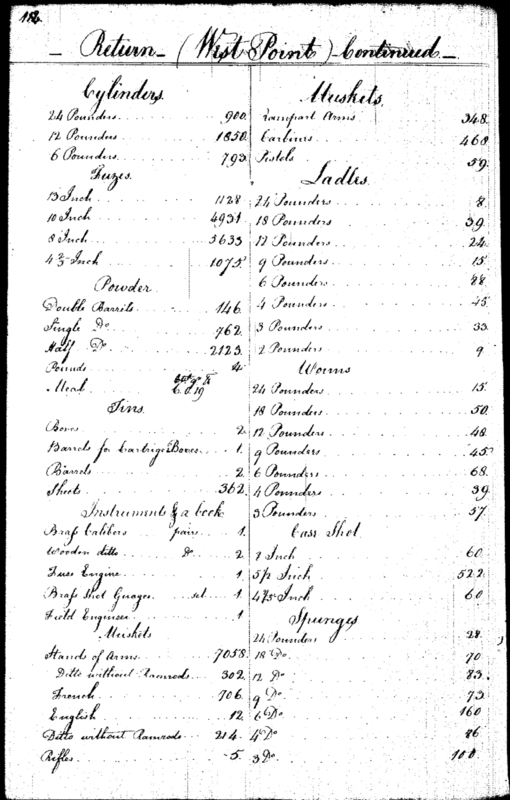 186
Return (West Point) Continued
Cylinders.
24 Pounders 900.
12 Pounders 1850.
6 Pounders 793.
Fuzes.
13 Inch 1128
10 Inch 4931
8 Inch 3633
4 2/5 Inch 1075
Powder
Double Barrils 146.
Single Do 762.
Half Do 2123.
Pounds 4
Meal
Tins.
Boxes 2.
Barrels for Cartriges Boxes 1.
Barrels 2.
Sheets 362.
Instruments & a book
Brass Calibers pairs 1.
Wooden ditto Do 2
Fuse Engine 1.
Brass Shot Guages set 1.
Field Engineer 1
Muskets
Stands of Arms 7058.
Ditto without Ramrods 302.
French 706.
English 12.
Ditto without Ramrods 214.
Rifles 5.
Muskets.
Rampart Arms 348.
Carbines 468
Pistols 59.
Ladles.
24 Pounders 8
18 Pounders 39.
12 Pounders 24
9 Pounders 15
6 Pounders 88
4 Pounders 45
3 Pounders 33
2 Pounders 9
Worms
24 Pounders 15
18 Pounders 50
12 Pounders 48
9 Pounders 45
6 Pounders 68.
4 Pounders 39
3 Pounders 57
Case Shot
7 Inch 60
5 1/2 Inch 522
Inch 60
Spunges
24 Pounders 28
18 Do 70
12 Do 83.
9 Do 73
6 Do 160
4 Do 86
3 Do 100